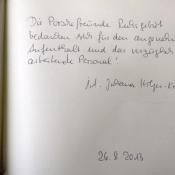 Die Porschefreunde Ruhrgebiet
bedanken sich für den angenehmen
Aufenthalt und das vorzüglich
arbeitende Personal!
i.A. Johannes
26.8.2013